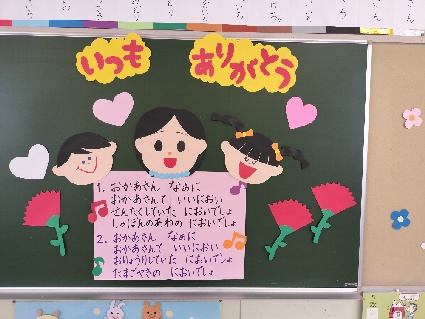 いつも
ありがとう
1. おかあさん なぁに
おかあさんて いいにおい
せんたくしていた においでしょ
しゃぼんのあわの においでしょ
2. おかあさん なぁに
おかあさんて いいにおい
おりょうりしていた においでしょ
たまごやきの においでしょ